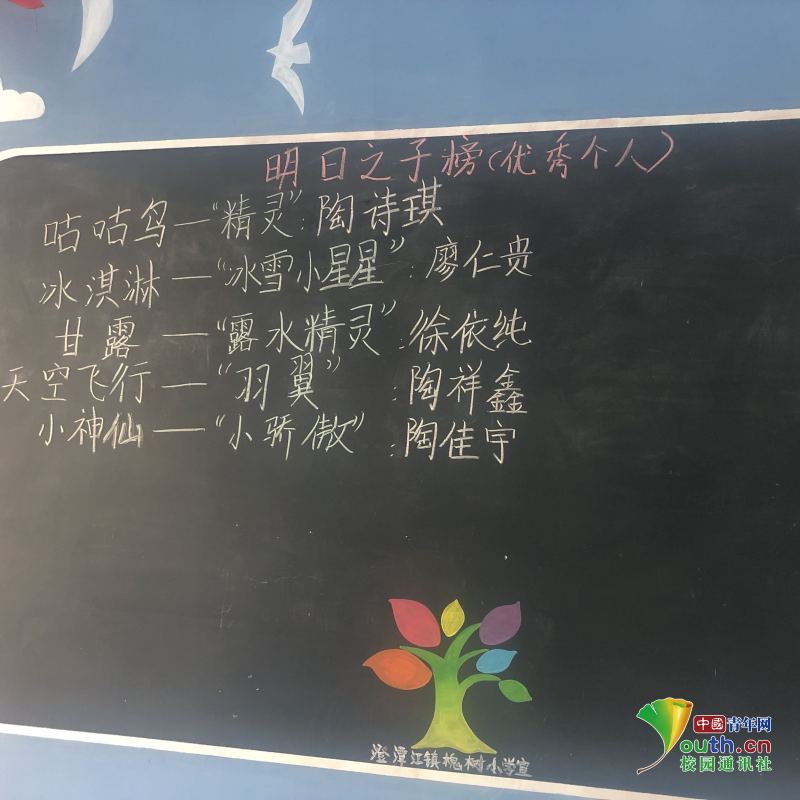 明日之子榜(优秀个人)
咕咕鸟—“精灵”:陶诗琪
冰淇淋—“冰雪小星星”:廖仁贵
甘露—“露水精灵”:徐依纯
天空飞行—“羽翼”:陶祥鑫
小神仙—“小骄傲”:陶佳宇
澄潭江镇槐树小学宣
中國青年网
youth.cn
校园通讯社